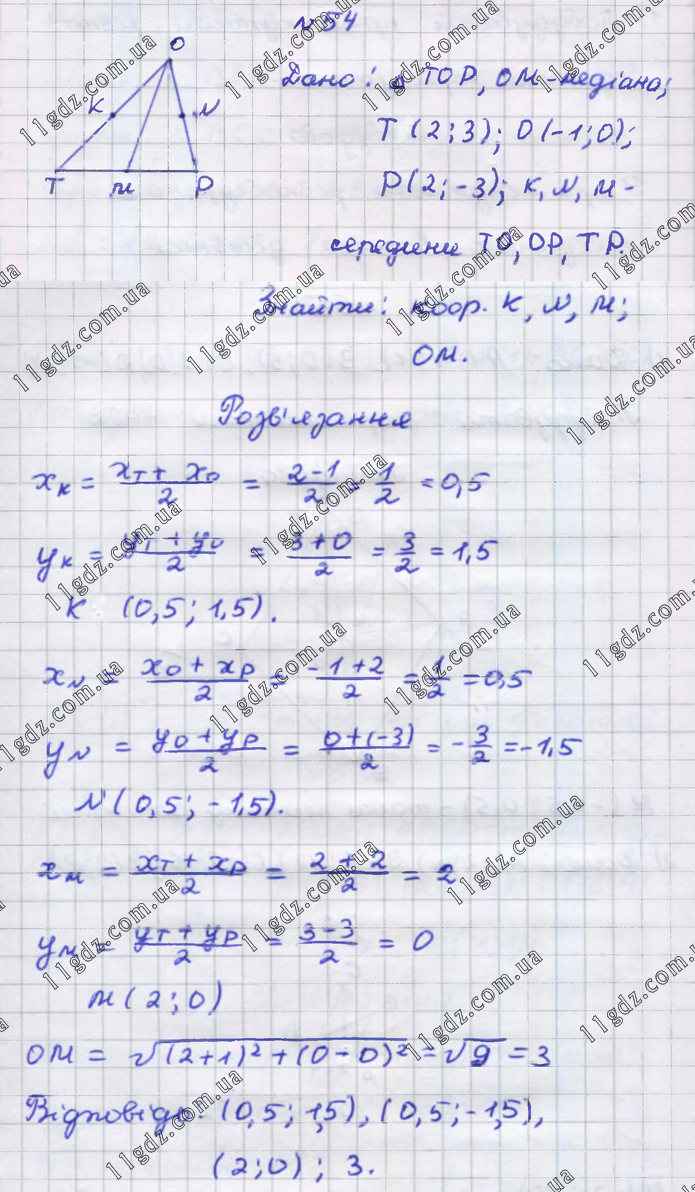 №54
O
Дано: Δ TOP, OM - медіана;
K N
T (2; 3); O (-1; 0);
T M P
P (2; -3); K, N, M -
середини TO, OP, TP.
Знайти: коор. K, N, M;
OM.
Розв'язання
x_K = (x_T + x_O)/2 = (2-1)/2 = 1/2 = 0,5
y_K = (y_T + y_O)/2 = (3+0)/2 = 3/2 = 1,5
K (0,5; 1,5).
x_N = (x_O + x_P)/2 = (-1+2)/2 = 1/2 = 0,5
y_N = (y_O + y_P)/2 = (0+(-3))/2 = -3/2 = -1,5
N (0,5; -1,5).
x_M = (x_T + x_P)/2 = (2+2)/2 = 2
y_M = (y_T + y_P)/2 = (3-3)/2 = 0
M (2; 0)
OM = √((2+1)² + (0-0)²) = √9 = 3
Відповідь: (0,5; 1,5), (0,5; -1,5),
(2; 0); 3.
11gdz.com.ua